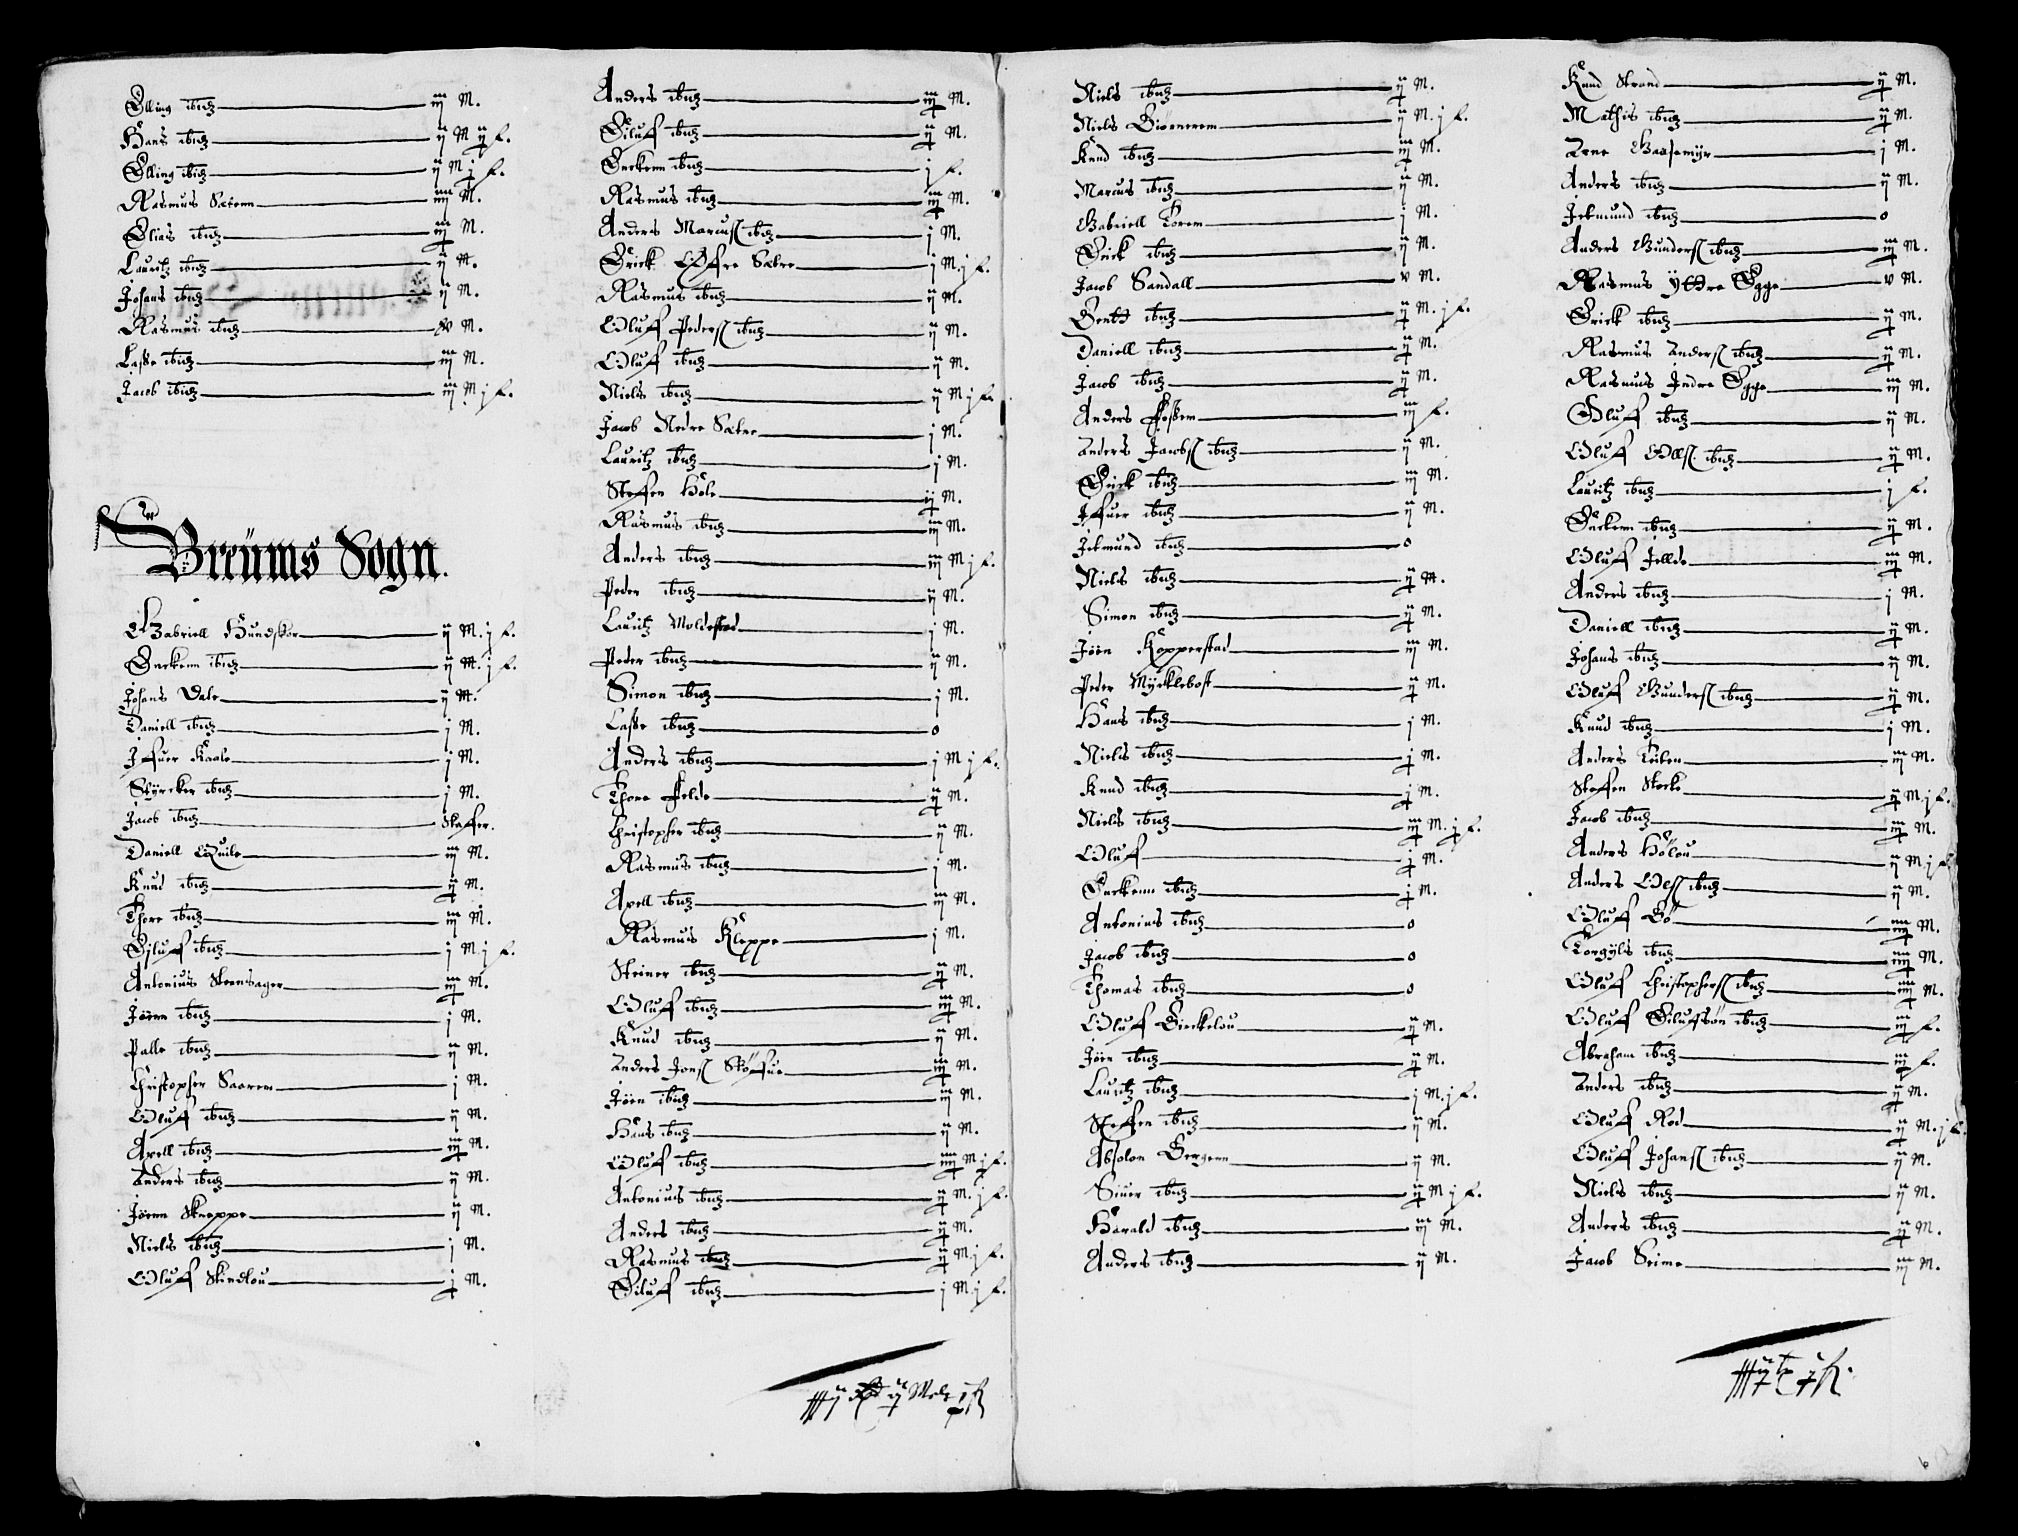 Elling ibid iij M.
Hans ibid ij M ij f.
Elling ibid ij M j f.
Rasmus Sætenn iiij M.
Elias ibid iij M.
Lauritz ibid ij M.
Johans ibid ij M.
Rasmus ibid v M.
Lasse ibid iij M.
Jacob ibid iij M j f.
Breüms Sogn.
Gabriell Hundskar ij M. j f.
Enckenn ibid ij M. j f.
Johans Dale ij M.
Daniell ibid j M.
Iffuer Kaale j M.
Styrcker ibid j M.
Jacob ibid Skaffer.
Daniell Quile iij M.
Knud ibid ij M.
Thore ibid iij M.
Eiluff ibid j M j f.
Antonius Steensager iij M.
Jörnn ibid j M.
Palle ibid ij M.
Christopher Saarem j M.
Oluff ibid ij M.
Axell ibid iij M.
Anders ibid ij M.
Jörnn Skreppe ij M.
Niels ibid j M.
Oluff Skindlou j M.
Anders ibid iij M.
Eiluff ibid ij M.
Enckenn ibid j f.
Rasmus ibid iij M.
Anders Marcuss ibid j M.
Erick Öffre Sætre j M. j f.
Rasmus ibid ij M.
Oluff Peders ibid ij M.
Oluff ibid ij M.
Niels ibid ij M j f.
Jacob Nedre Sætre j M.
Lauritz ibid j M.
Steffen Hole ij M.
Rasmus ibid iij M.
Anders ibid iij M j f.
Peder ibid ij M.
Lauritz Moldestad j M.
Peder ibid ij M.
Simon ibid j M.
Lasse ibid o
Anders ibid j M j f.
Thore Felde ij M.
Christopher ibid ij M.
Rasmus ibid j M.
Axell ibid iij M.
Rasmus Kleppe j M.
Steiner ibid ij M.
Oluff ibid iij M.
Knud ibid ij M.
Anders Jons Stöffue iij M.
Jörn ibid iij M.
Hans ibid ij M.
Oluff ibid iiij M j f.
Antonius ibid ij M. j f.
Anders ibid ij M.
Rasmus ibid ij M j f.
Eiluff ibid j M. j f.
Niels ibid ij M.
Niels Biörnerem ij M. j f.
Knud ibid iij M.
Marcus ibid ij M.
Gabriell Torem j M.
Erick ibid ij M.
Jacob Sandall v M.
Bentt ibid ij M. j f.
Daniell ibid ij M.
Jacob ibid ij M.
Anders Fossem iij f.
Anders Jacobs ibid ij M.
Erick ibid iij M.
Iffuer ibid ij M.
Jetmund ibid o
Niels ibid ij M.
Simon ibid ij M.
Jörn Kopperstad iij M.
Peder Mycklebost ij M.
Hans ibid j M.
Niels ibid j M.
Knud ibid j M.
Niels ibid iij M. j f.
Oluff j M.
Enckenn ibid j M.
Antonius ibid o
Jacob ibid o
Thomas ibid o
Oluff Birckelou ij M.
Jörn ibid ij M.
Lauritz ibid j M. j f.
Steffen ibid ij M.
Absolon Bergenn ij M.
Siuer ibid ij M j f.
Harald ibid iij M.
Anders ibid ij M.
Knud Strand ij M.
Mathis ibid ij M.
Arne Gaasemyr j M.
Anders ibid ij M.
Jetmund ibid o
Anders Gunders ibid iij M.
Rasmus Yttre Egge v M.
Erick ibid ij M.
Rasmus Anders ibid ij M.
Rasmus Indre Egge iij M.
Oluff ibid ij M.
Oluff Olls. ibid ij M.
Lauritz ibid j f.
Enckenn ibid ij M.
Oluff Jellde iij M.
Anders ibid j M.
Daniell ibid ij M.
Johans ibid ij M.
Oluff Gunders ibid ij M.
Knud ibid j M.
Anders Reiten iij M.
Steffen Stocke ij M j f.
Jacob ibid iij M.
Anders Hölou ij M j f.
Anders Ols ibid ij M.
Oluff Bö iiij M.
Torgyls ibid iiij M.
Oluff Christophers ibid iiij M.
Oluff Eilufsön ibid iij f.
Abraham ibid iij f.
Anders ibid ij M.
Oluff Rød ij M. j f.
Oluff Johans ibid ij M.
Niels ibid ij M.
Anders ibid ij M.
Jacob Seime iij M.
6